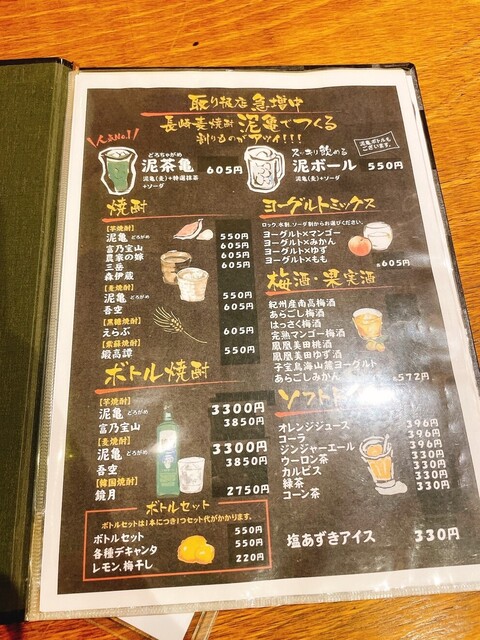 取り扱店 急増中
長崎麦焼酎 泥亀でつくる
割りものがアツイ!!!
人気No.1
どろちゃがめ
泥茶亀 605円
泥亀(麦)+特選抹茶
+ソーダ
スッキリ飲める
泥ボール 550円
泥亀(麦)+ソーダ
泥亀ボトルも
ございます。
焼酎
【芋焼酎】
泥亀 どろがめ 550円
富乃宝山 605円
農家の嫁 605円
三岳 605円
森伊蔵
【麦焼酎】
泥亀 どろがめ 550円
吾空 605円
【黒糖焼酎】
えらぶ 605円
【紫蘇焼酎】
鍛高譚 550円
ボトル焼酎
【芋焼酎】
泥亀 どろがめ 3300円
富乃宝山 3850円
【麦焼酎】
泥亀 どろがめ 3300円
吾空 3850円
【韓国焼酎】
鏡月 2750円
ボトルセット
ボトルセットは1本につき1つセット代がかかります。
ボトルセット 550円
各種デキャンタ 550円
レモン、梅干し 220円
ヨーグルトミックス
ロック、水割、ソーダ割からお選びください。
ヨーグルト×マンゴー
ヨーグルト×みかん
ヨーグルト×ゆず
ヨーグルト×もも
各605円
梅酒・果実酒
紀州産南高梅酒
あらごし梅酒
はっさく梅酒
完熟マンゴー梅酒
鳳凰美田桃酒
鳳凰美田ゆず酒
子宝鳥海山麓ヨーグルト
あらごしみかん 各572円
ソフトド
オレンジジュース 396円
コーラ 396円
ジンジャーエール 396円
ウーロン茶 330円
カルピス 330円
緑茶 330円
コーン茶 330円
塩あずきアイス 330円